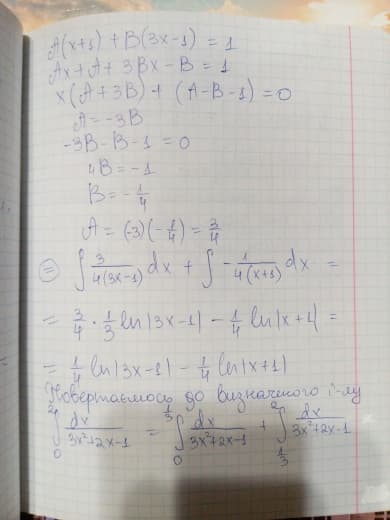 A(x+1) + B(3x-1) = 1
Ax + A + 3Bx - B = 1
x(A+3B) + (A-B-1) = 0
A = -3B
-3B - B - 1 = 0
4B = -1
B = -1/4
A = (-3)(-1/4) = 3/4
(=) ∫ 3/(4(3x-1)) dx + ∫ -1/(4(x+1)) dx =
= 3/4 · 1/3 ln|3x-1| - 1/4 ln|x+1| =
= 1/4 ln|3x-1| - 1/4 ln|x+1|
Повертаємось до визначеного і-лу
∫₀² dx/(3x²+2x-1) = ∫₀^(1/3) dx/(3x²+2x-1) + ∫_(1/3)^2 dx/(3x²+2x-1)